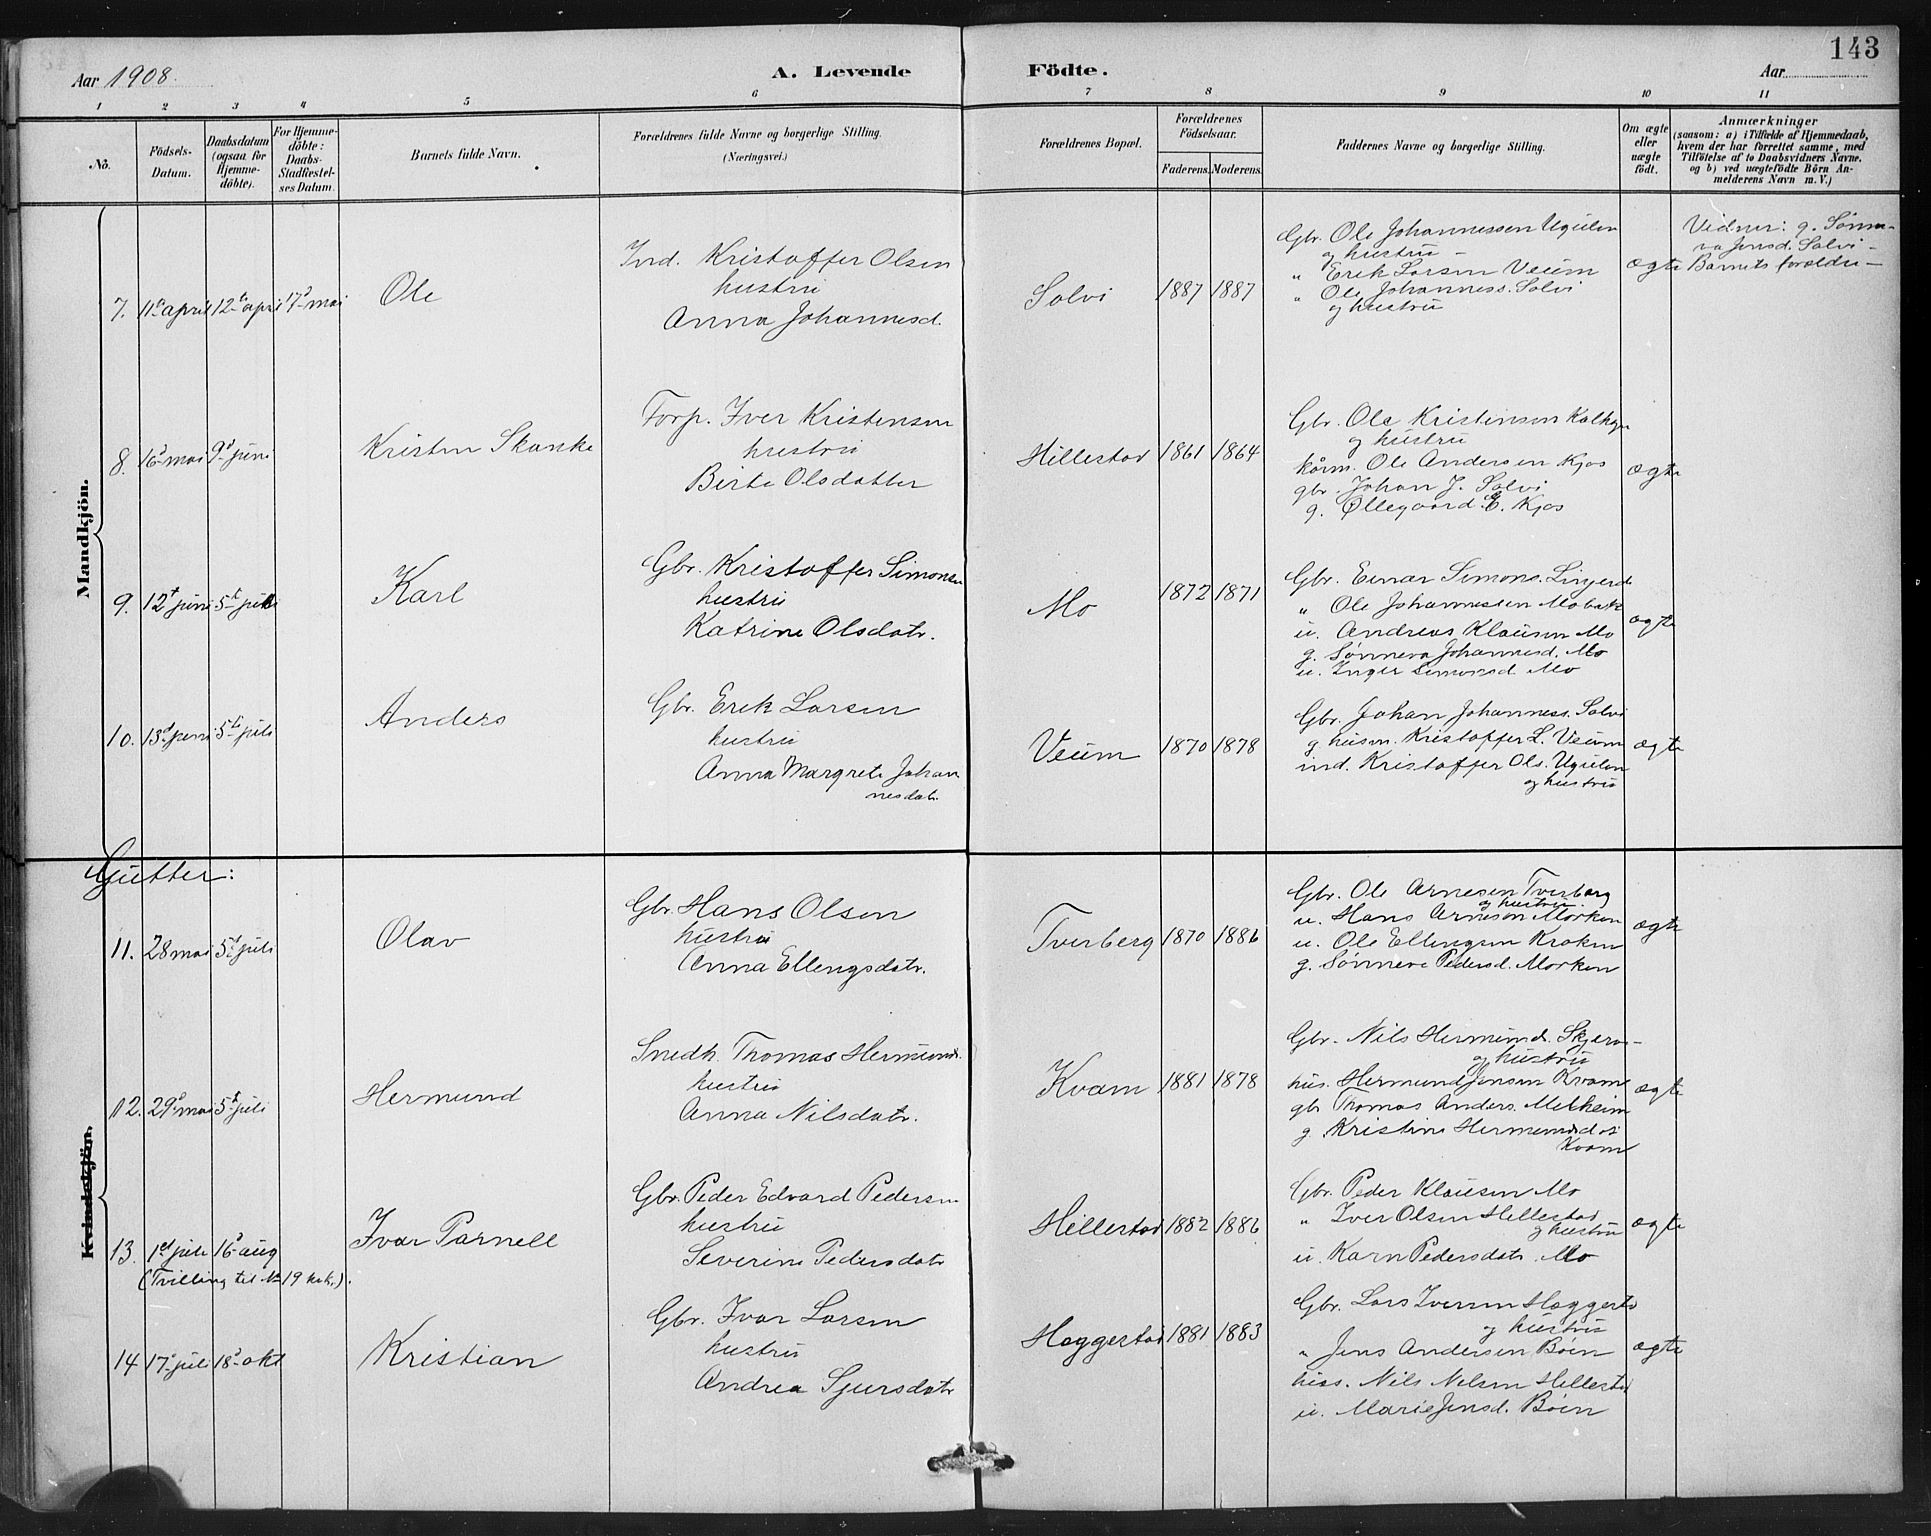 143
Aar 1908. A. Levende Födte. Aar
1 2 3 4 5 6 7 8 9 10 11
No.
Födsels-Datum.
Daabsdatum (ogsaa for Hjemme-döbte).
For Hjemme-döbte: Daabs-Stadfestel-ses Datum.
Barnets fulde Navn.
Forældrenes fulde Navne og borgerlige Stilling. (Næringsvei.)
Forældrenes Bopæl.
Forældrenes Födselsaar.
Faderens. Moderens.
Faddernes Navne og borgerlige Stilling.
Om ægte eller uægte födt.
Anmærkninger
(saasom: a) i Tilfælde af Hjemmedaab,
hvem der har forrettet samme, med
Tilföielse af to Daabsvidners Navne.
og b) ved uægtefödte Börn An-
melderens Navn m.V.)
Mandkjön.
7. 11te april 12te april 17d mai
Ole
Ind. Kristoffer Olsen
hustru
Anna Johannesd.
Solvi 1887 1887
Gbr. Ole Johannessen
og hustru
" Erik Larsen Veum
" Ole Johanness. Solvi
og hustru
ægte
Vidner: g. Sønne-
va Jensd. Solvi -
Barnets forældre -
8. 16d mai 9d juni
Kristen Skanke
Torp. Iver Kristensen
hustru
Birte Olsdatter
Hillestad 1861 1864
Gbr. Ole Kristensen
og hustru
kårm. Ole Andersen Kjos
gbr. Johan J. Solvi
g. Øllegaard E. Kjos
ægte
9. 12t juni 5t juli
Karl
Gbr. Kristoffer Simonsen
hustru
Katrine Olsdatr.
Mo 1872 1871
Gbr. Einar Simons.
" Ole Johannessen Mobak
u. Andreas Klausen Mo
g. Sønneva Johannesd. Mo
u. Inger Simonsd. Mo
ægte
10. 13d juni 5te juli
Anders
Gbr. Erik Larsen
hustru
Anna Margrete Johan
nesdatr.
Veum 1870 1878
Gbr. Johan Johanness. Solvi
g. husm. Kristoffer L. Veum
ind. Kristoffer Ols.
og hustru
ægte
Gutter:
Kvindekjön.
11. 28 mai 5t juli
Olav
Gbr. Hans Olsen
hustru
Anna Ellengsdatr.
Tverberg 1870 1886
Gbr. Ole Arnesen Tverberg
og hustru.
u. Hans Arneson Morken
u. Ole Ellengsen Kroken
g. Sønneve Pedersd. Morken
ægte
12. 29d mai 5t juli
Hermund
Snedk. Thomas Hermunds.
hustru
Anna Nilsdatr.
Kvam 1881 1878
Gbr. Nils Hermunds.
og hustru
hus. Hermund Jensen Kvam
gbr Thomas Anders. Melheim
g. Kristine Hermundsd.
Kvam
ægte
13. 1st juli 16d aug
(Tvilling til No 19 kvk.).
Ivar Parnell
Gbr. Peder Edvard Pedersen
hustru
Severine Pedersdatr
Hillestad 1882 1886
Gbr. Peder Klausen Mo
" Iver Olsen Hillestad
og hustru
u. Karn Pedersdatr. Mo
ægte
14 17d juli 18d okt
Kristian
Gbr. Ivar Larsen
hustru
Andrea Sjursdatr
Haggestad 1881 1883
Gbr. Lars Iversen Haggest.
og hustru
" Jens Andersen Böen
hus. Nils Nilsen Hillestad
u. Marie Jensd. Böen
ægte